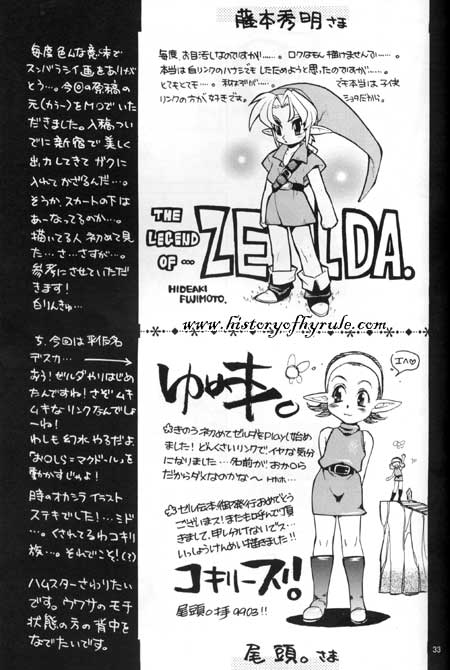 藤本秀明さま
毎度、お目汚しなのですが……。ロクなもん描けませんで……。
本当は白リンクのハナシでもしたためようと思ったのですが……。
とてもとても…。
でも本当は子供
リンクの方が好きです。
ショタだから。
THE
LEGEND
OF…
ZELDA.
HIDEAKI
FUJIMOTO.
毎度色んな意味で
スンバラライ画をありがとう
…。今回の原稿の
元(カラー)をMOでいた
だきました。入稿つい
でに新宿で美しく
出力してきてガクに
入れてかざるんだ…。
そうか、スカートの下は
あーなってるのか…。
描いてる人初めて見
た…さ…さすが…。
参考にさせていただ
きます!
白りんきゅ…
www.historyofhyrule.com
ゆ
☆きのう初めてゼルダをPlayし始め
ました!どんくさいリンクでイヤな気分
になりました…名前がおかしら
だからダメなのかな〜
☆ゼル伝本御発行おめでとう
ございまス!またも呼んで頂
きまして、申し分けないでス…
いっしょうけんめい描きました!!
コキリーズ!!
尾頭。 9903!!
エヘ♡
5.今回は平仮名
デスカ…
おう!ゼルダやりはじめ
たんですね!さぞムキ
ムキなリンクなんでしょ
〜ね!
わしも幻水やるだよ
動かすじょよ!
時のオカシライラスト
ステキでした!…ミド
…。くされてるわコキリ
族…。それでこと!(?)
ハムスターさわりたい
です。ウワサのモチ
状態の方の背中を
なでたいです。
尾頭。さま
33